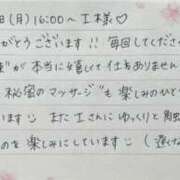 (月) 16:00〜 I様♡
がとうございます!! 毎回してくださ
が本当に嬉しくて仕方ありませ
秘蜜のマッサージ"も 楽しみのひと
ます!! また I さんに ゆっくりと
のを 楽しみにしています(